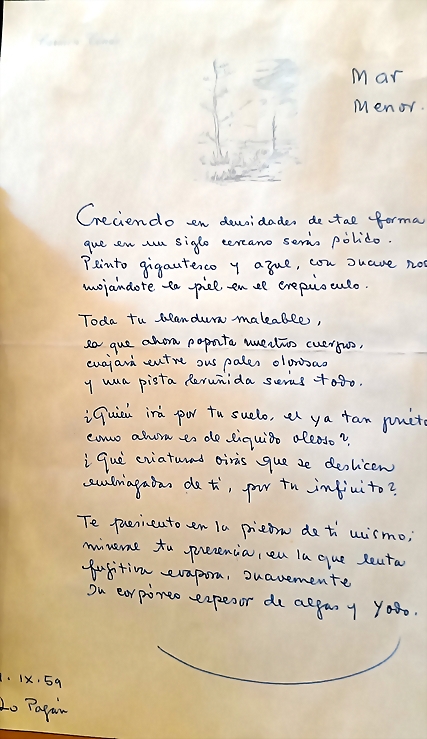 Mar
Menor.
Creciendo en densidades de tal forma
que en un siglo cercano serás pólido.
Plinto gigantesco y azul, con suave ros
mojándote la piel en el crepúsculo.
Toda tu blandura maleable,
la que ahora soporta nuestros cuerpos,
cuajará entre sus sales olorosas
y una pista bruñida serás todo.
¿Quién irá por tu suelo, el ya tan prieto
como ahora es de líquido oleoso?
¿Qué criaturas oirás que se deslicen
embriagadas de ti, por tu infinito?
Te presiento en la piedra de ti mismo;
mineral tu presencia, en la que lenta
fugitiva evapora, suavemente
su corpóreo espesor de algas y yodo.
IX.59
Lo Pagán